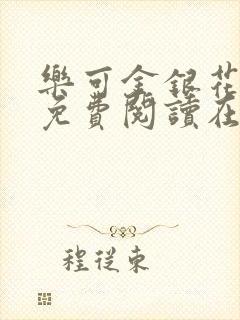 樂可金銀花
免費閱讀在
程從東